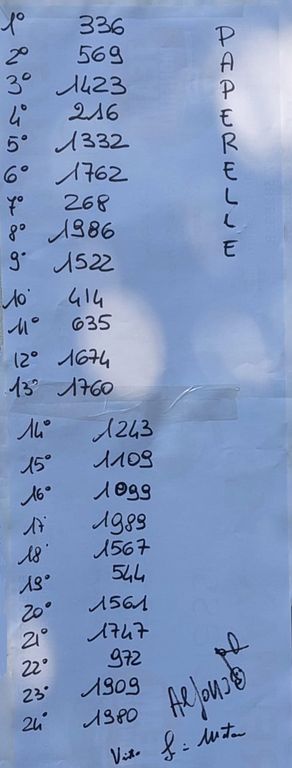 PAPERELLE
1° 336
2° 569
3° 1423
4° 216
5° 1332
6° 1762
7° 268
8° 1986
9° 1522
10° 414
11° 635
12° 1674
13° 1760
14° 1243
15° 1109
16° 1099
17° 1989
18° 1567
19° 544
20° 1561
21° 1747
22° 972
23° 1909
24° 1980